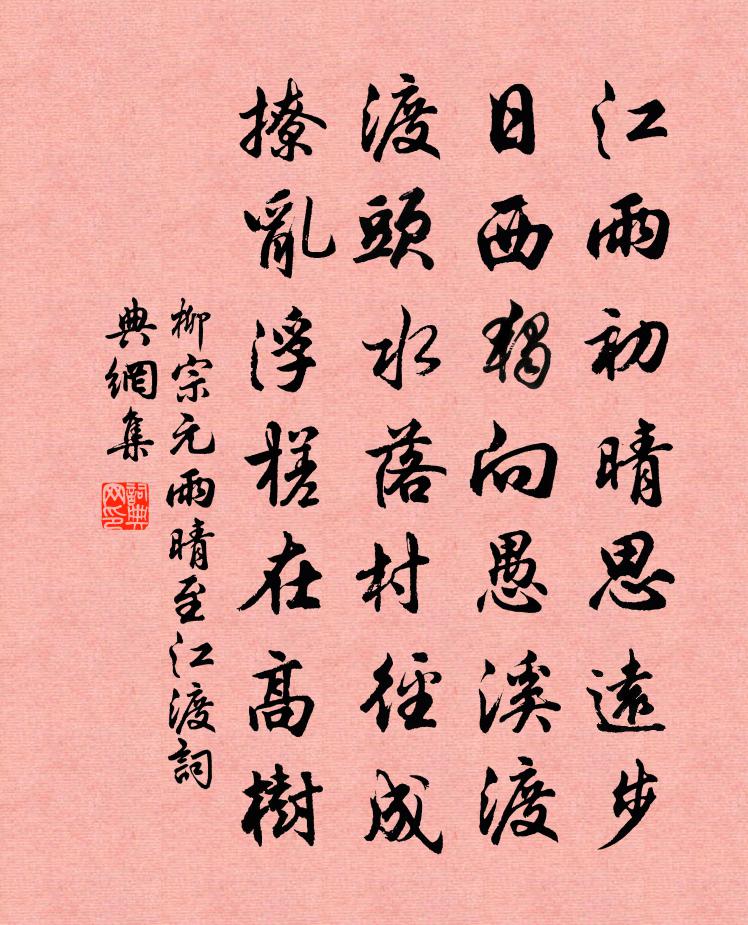 江雨初晴思遠步
日西獨向愚溪渡
渡頭水落村徑成
撩亂浮槎在高樹
柳宗元雨晴至江渡詞
典網集
詞典网印